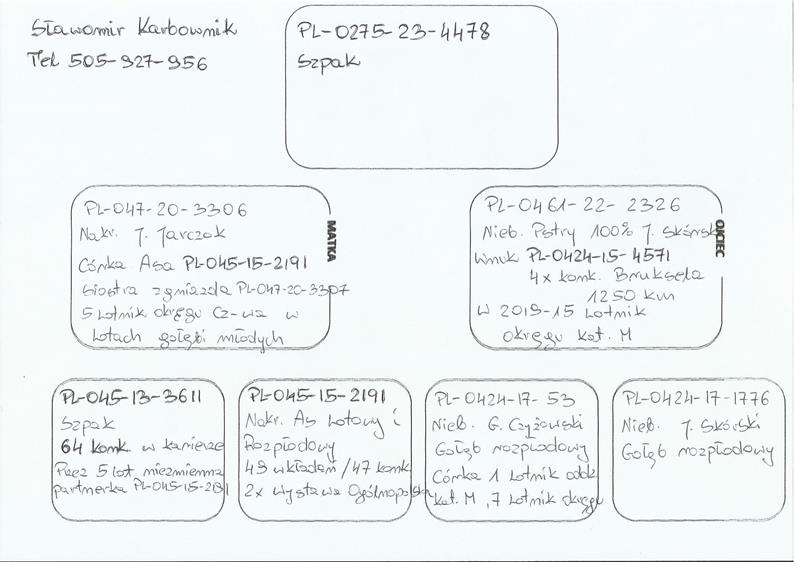 Sławomir Karbownik
Tel 505-927-956
PL-0275-23-4478
Szpak
PL-047-20-3306
Nakr. J. Jarczok
Córka Asa PL-045-15-2191
Siostra z gniazda PL-047-20-3307
5 Lotnik okręgu Cz-wa w
Lotach gołębi młodych
MATKA
PL-0461-22-2326
Nieb. Pstry 100% J. Skórski
Wnuk PL-0424-15-4571
4x konk. Bruksela
1250 km
W 2019-15 Lotnik
Okręgu kat. M
OJCIEC
PL-045-13-3611
Szpak
64 konk. w karierze
Przez 5 lat niezmienna
partnerka PL-045-15-2191
PL-045-15-2191
Nakr. As Lotowy i
Rozpłodowy
49 wkładań/47 konk.
2x Wystawa Ogólnopolska
PL-0424-17-53
Nieb. G. Czyżowski
Gołąb rozpłodowy
Córka 1 Lotnik oddz.
kat. M, 7 Lotnik okręgu
PL-0424-17-1776
Nieb. J. Skórski
Gołąb rozpłodowy